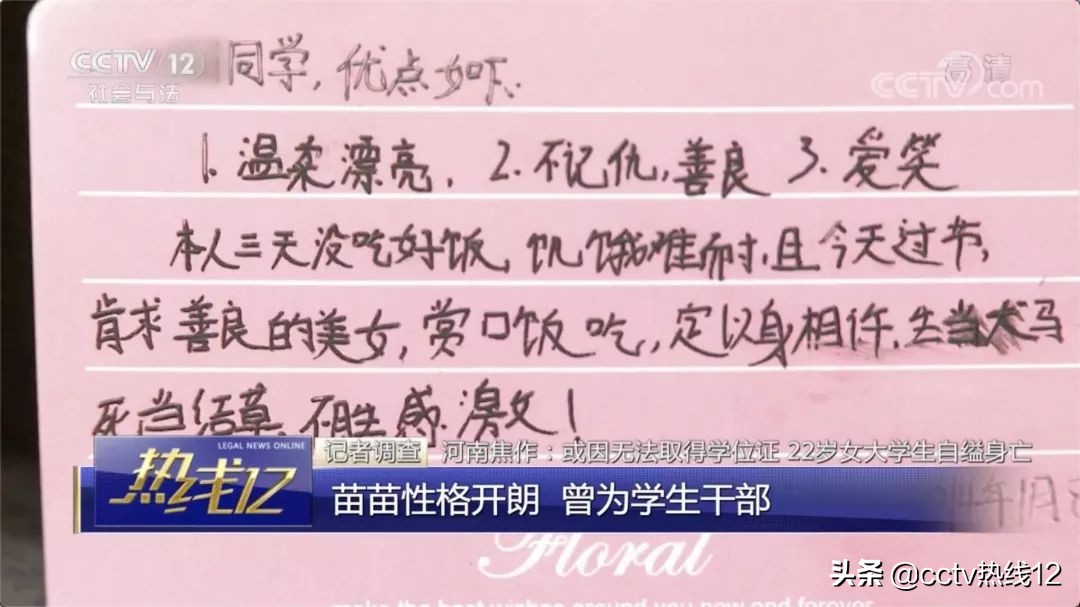 CCTV 12
社会与法
高清
CCTV.com
同学,优点如下、
1.温柔漂亮, 2.不记仇,善良 3.爱笑
本人三天没吃好饭,饥饿难耐,且今天过节,
肯求善良的美女,赏口饭吃,定以身相许,生当犬马
死当结草,不胜感激!
LEGAL NEWS ONLINE
热线12
记者调查 河南焦作:或因无法取得学位证 22岁女大学生自缢身亡
苗苗性格开朗 曾为学生干部
Floral
make the best wishes around you now and forever
头条 @cctv热线12